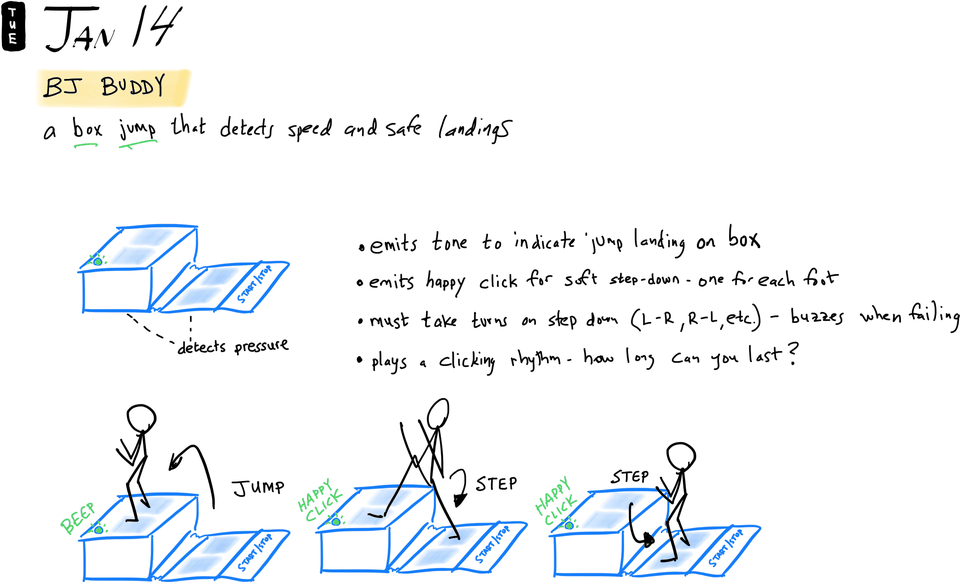 TUE
JAN 14
BJ BUDDY
a box jump that detects speed and safe landings
• emits tone to indicate jump landing on box
• emits happy click for soft step-down - one for each foot
• must take turns on step down (L-R, R-L, etc.) - buzzes when failing
• plays a clicking rhythm - how long can you last?
START/STOP
detects pressure
BEEP
JUMP
START/STOP
HAPPY
CLICK
STEP
START/STOP
HAPPY
CLICK
STEP
START/STOP